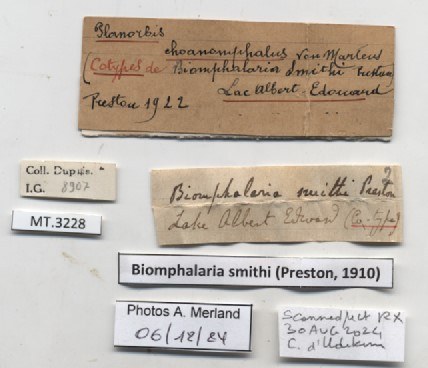 Planorbis
choanomphalus von Martens
(Cotypes de Biomphalaria smithi Preston)
Lac Albert Edouard
Preston 1922
Coll. Dupuis.
I.G. 8907
MT.3228
Biomphalaria smithi Preston ?
Lake Albert Edward (Co-type)
Biomphalaria smithi (Preston, 1910)
Photos A. Merland
06/12/24
RX
30 AUG 2024
C. d'Udekem